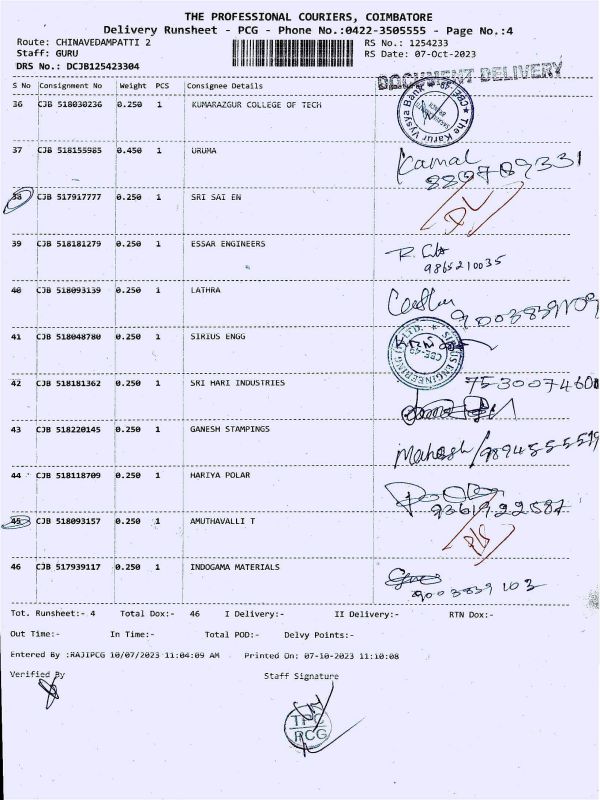 THE PROFESSIONAL COURIERS, COIMBATORE
Delivery Runsheet - PCG - Phone No.:0422-3505555 - Page No.:4
Route: CHINAVEDAMPATTI 2 RS No.: 1254233
Staff: GURU RS Date: 07-Oct-2023
DRS No.: DCJB125423304
DOCUMENT DELIVERY
S No Consignment No Weight PCS Consignee Details
36 CJB 518030236 0.250 1 KUMARAZGUR COLLEGE OF TECH
The Karur Vysya Bank
37 CJB 518155985 0.450 1 URUMA
Kamal
38 CJB 517917777 0.250 1 SRI SAI EN
DL
39 CJB 518181279 0.250 1 ESSAR ENGINEERS
9865210035
40 CJB 518093139 0.250 1 LATHRA
9003839109
41 CJB 518048780 0.250 1 SIRIUS ENGG
CBE-49
42 CJB 518181362 0.250 1 SRI HARI INDUSTRIES
43 CJB 518220145 0.250 1 GANESH STAMPINGS
Mahesh/9894555519
44 CJB 518118709 0.250 1 HARIYA POLAR
9361922587
45 CJB 518093157 0.250 1 AMUTHAVALLI T
46 CJB 517939117 0.250 1 INDOGAMA MATERIALS
9003839103
Tot. Runsheet:- 4 Total Dox:- 46 I Delivery:- II Delivery:- RTN Dox:-
Out Time:- In Time:- Total POD:- Delvy Points:-
Entered By :RAJIPCG 10/07/2023 11:04:09 AM Printed On: 07-10-2023 11:10:08
Verified By Staff Signature
TPC
PCG